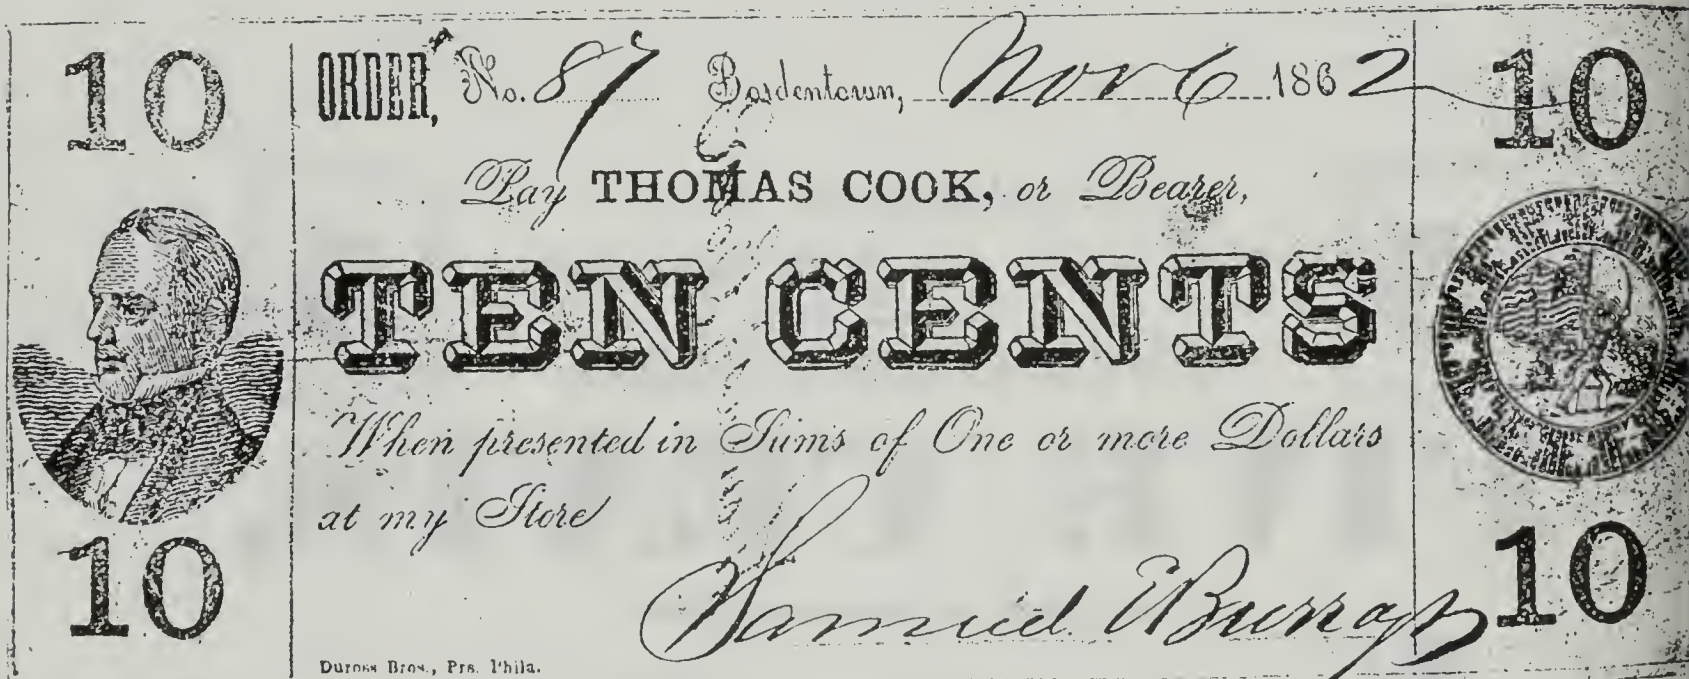 10 10
ORDER, No. 87 Bordentown, Nov 6 1862
Pay THOMAS COOK, or Bearer,
TEN CENTS
When presented in Sums of One or more Dollars
at my Store
Samuel E Burr
10 10
Duross Bros., Prs. Phila.